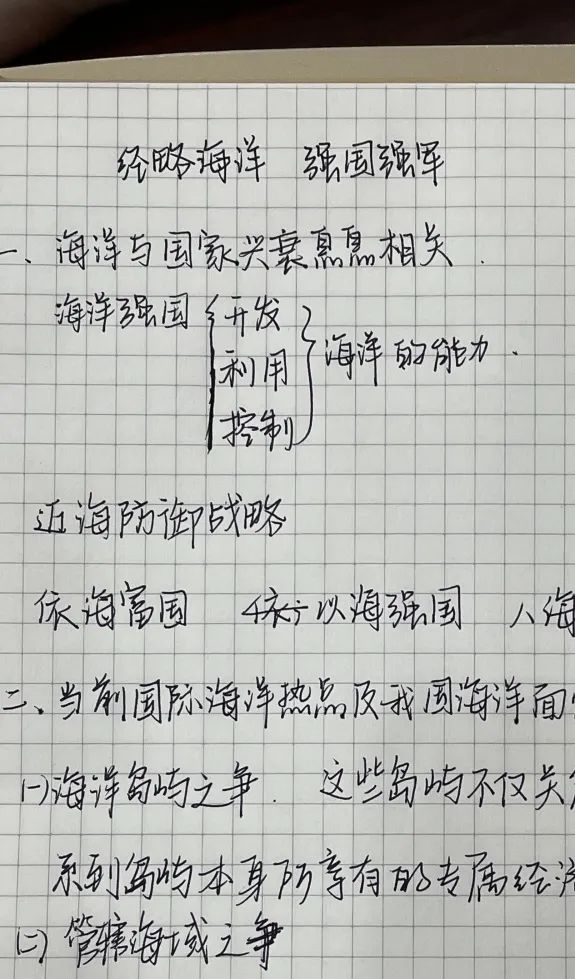 经略海洋 强国强军
一、海洋与国家兴衰息息相关.
海洋强国{开发
利用
控制}海洋的能力.
近海防御战略
依海富国 以海强国 人海
二、当前国际海洋热点及我国海洋面
(一)海洋岛屿之争. 这些岛屿不仅关
系到岛屿本身所享有的专属经济
(二)管辖海域之争